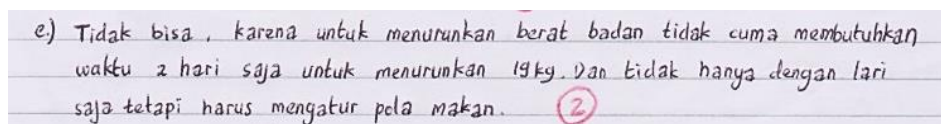 e.) Tidak bisa, karena untuk menurunkan berat badan tidak cuma membutuhkan
waktu 2 hari saja untuk menurunkan 19 kg. Dan tidak hanya dengan lari
saja tetapi harus mengatur pola makan. 2